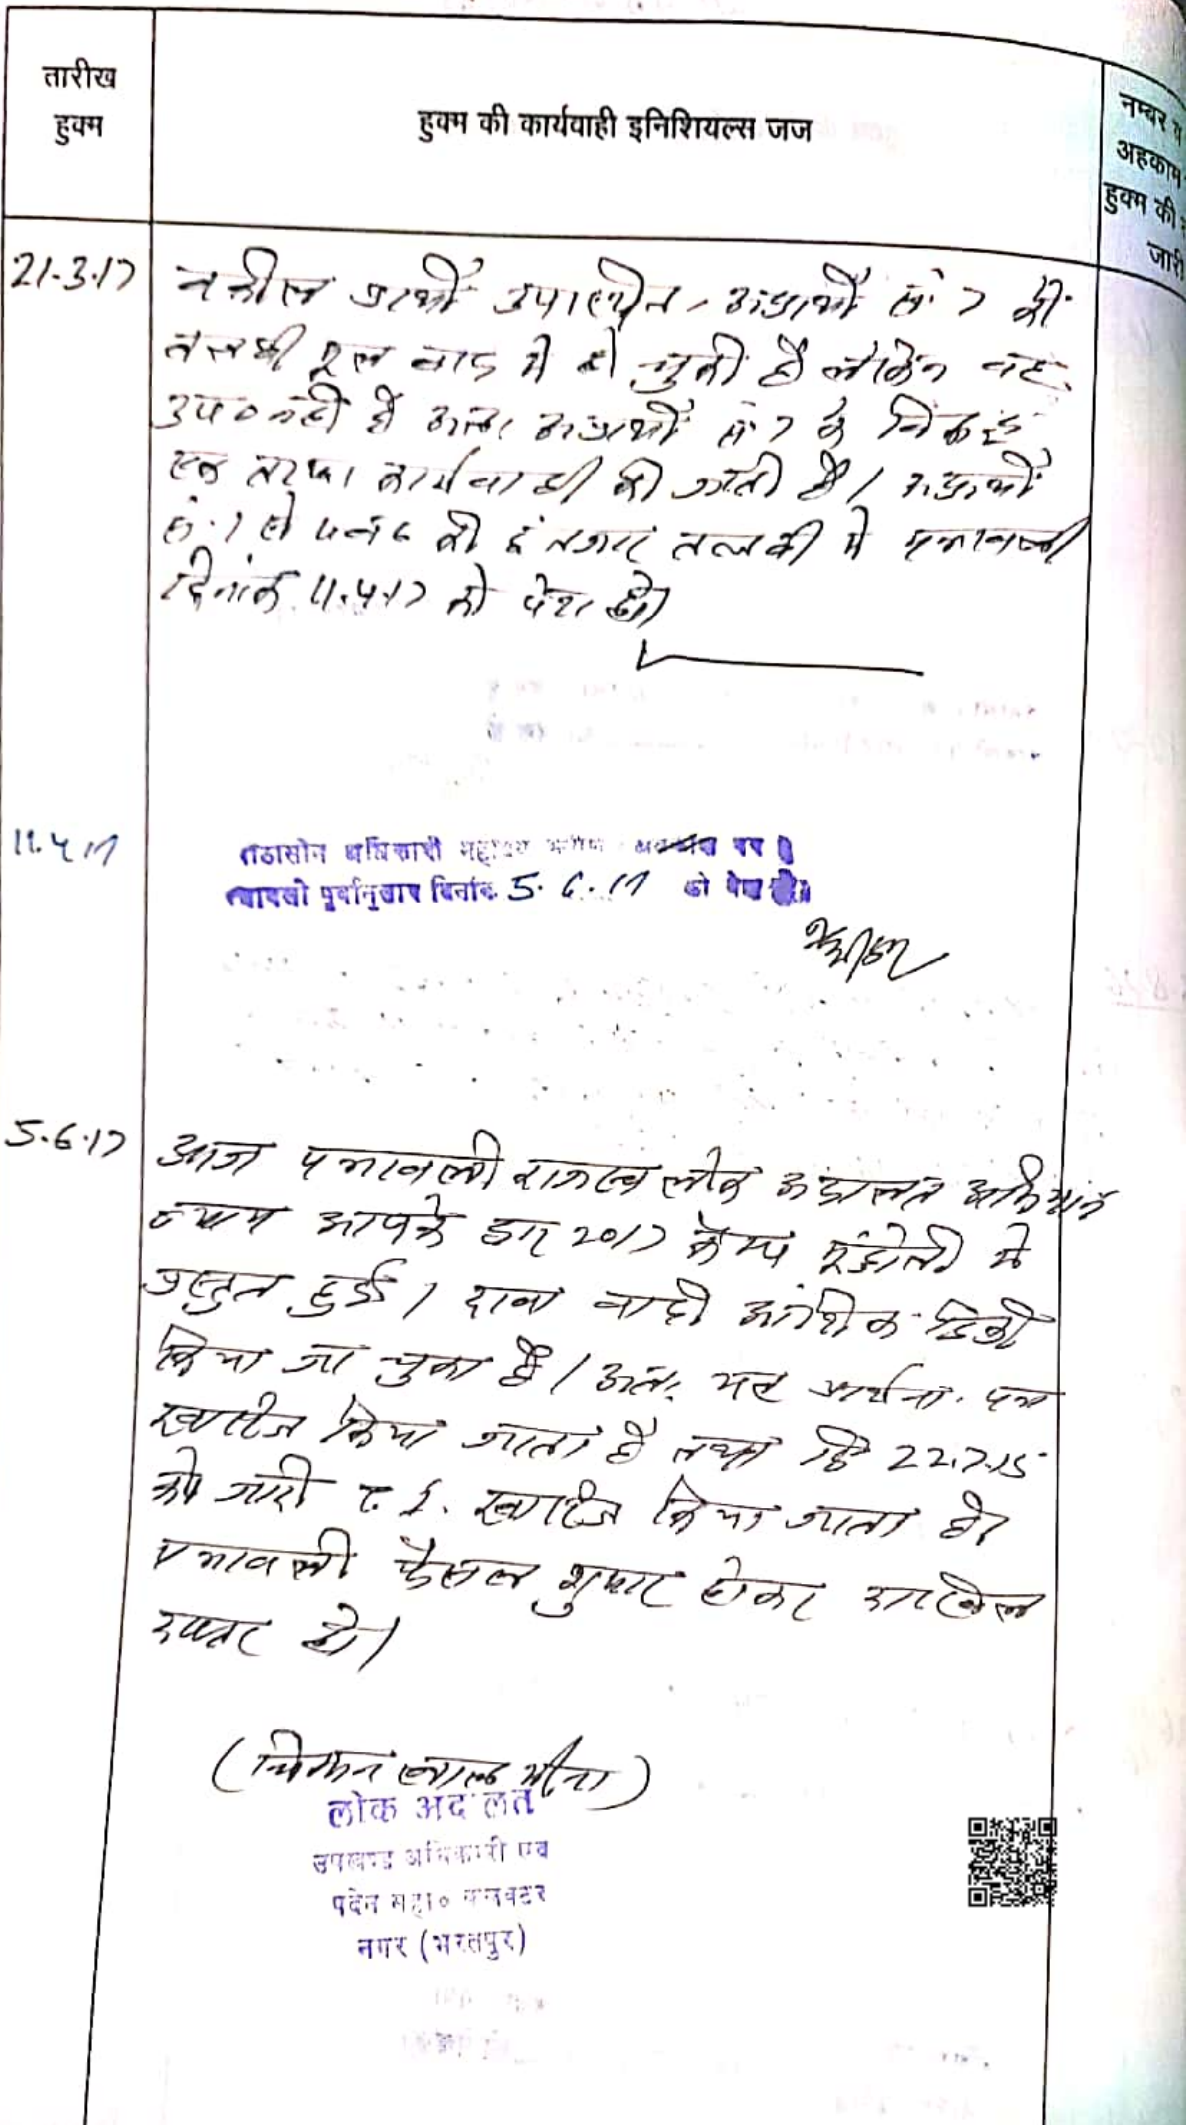 तारीख
हुक्म
हुक्म की कार्यवाही इनिशियल्स जज
नम्बर
अहकाम
हुक्म की
जारी
21.3.17
वकील प्रार्थी उपस्थित, अप्रार्थी सं. 7 की
तलबी मूल वाद में हो चुकी है लेकिन वह
उप० नहीं है अतः अप्रार्थी सं. 7 के विरूद्ध
एक तरफा कार्यवाही की जाती है। अप्रार्थी
सं. 1 से 4 व 6 की इंतजार तलबी में पत्रावली
दिनांक 11.4.17 को पेश हो।
11.4.17
पीठासीन अधिकारी महोदय अवकाश पर है
पत्रावली पूर्वानुसार दिनांक 5.6.17 को पेश हो।
5.6.17
आज पत्रावली राजस्व लोक अदालत अभियान
न्याय आपके द्वार 2017 कैम्प में
प्रस्तुत हुई। दावा वादी आंशिक डिक्री
किया जा चुका है। अतः यह प्रार्थना पत्र
खारिज किया जाता है तथा दि 22.7.15
को जारी T.I. खारिज किया जाता है।
पत्रावली फैसल शुमार होकर दाखिल
दफ्तर हो।
(चिमन लाल मीना)
लोक अदालत
उपखण्ड अधिकारी एवं
पदेन सहा० कलक्टर
नगर (भरतपुर)